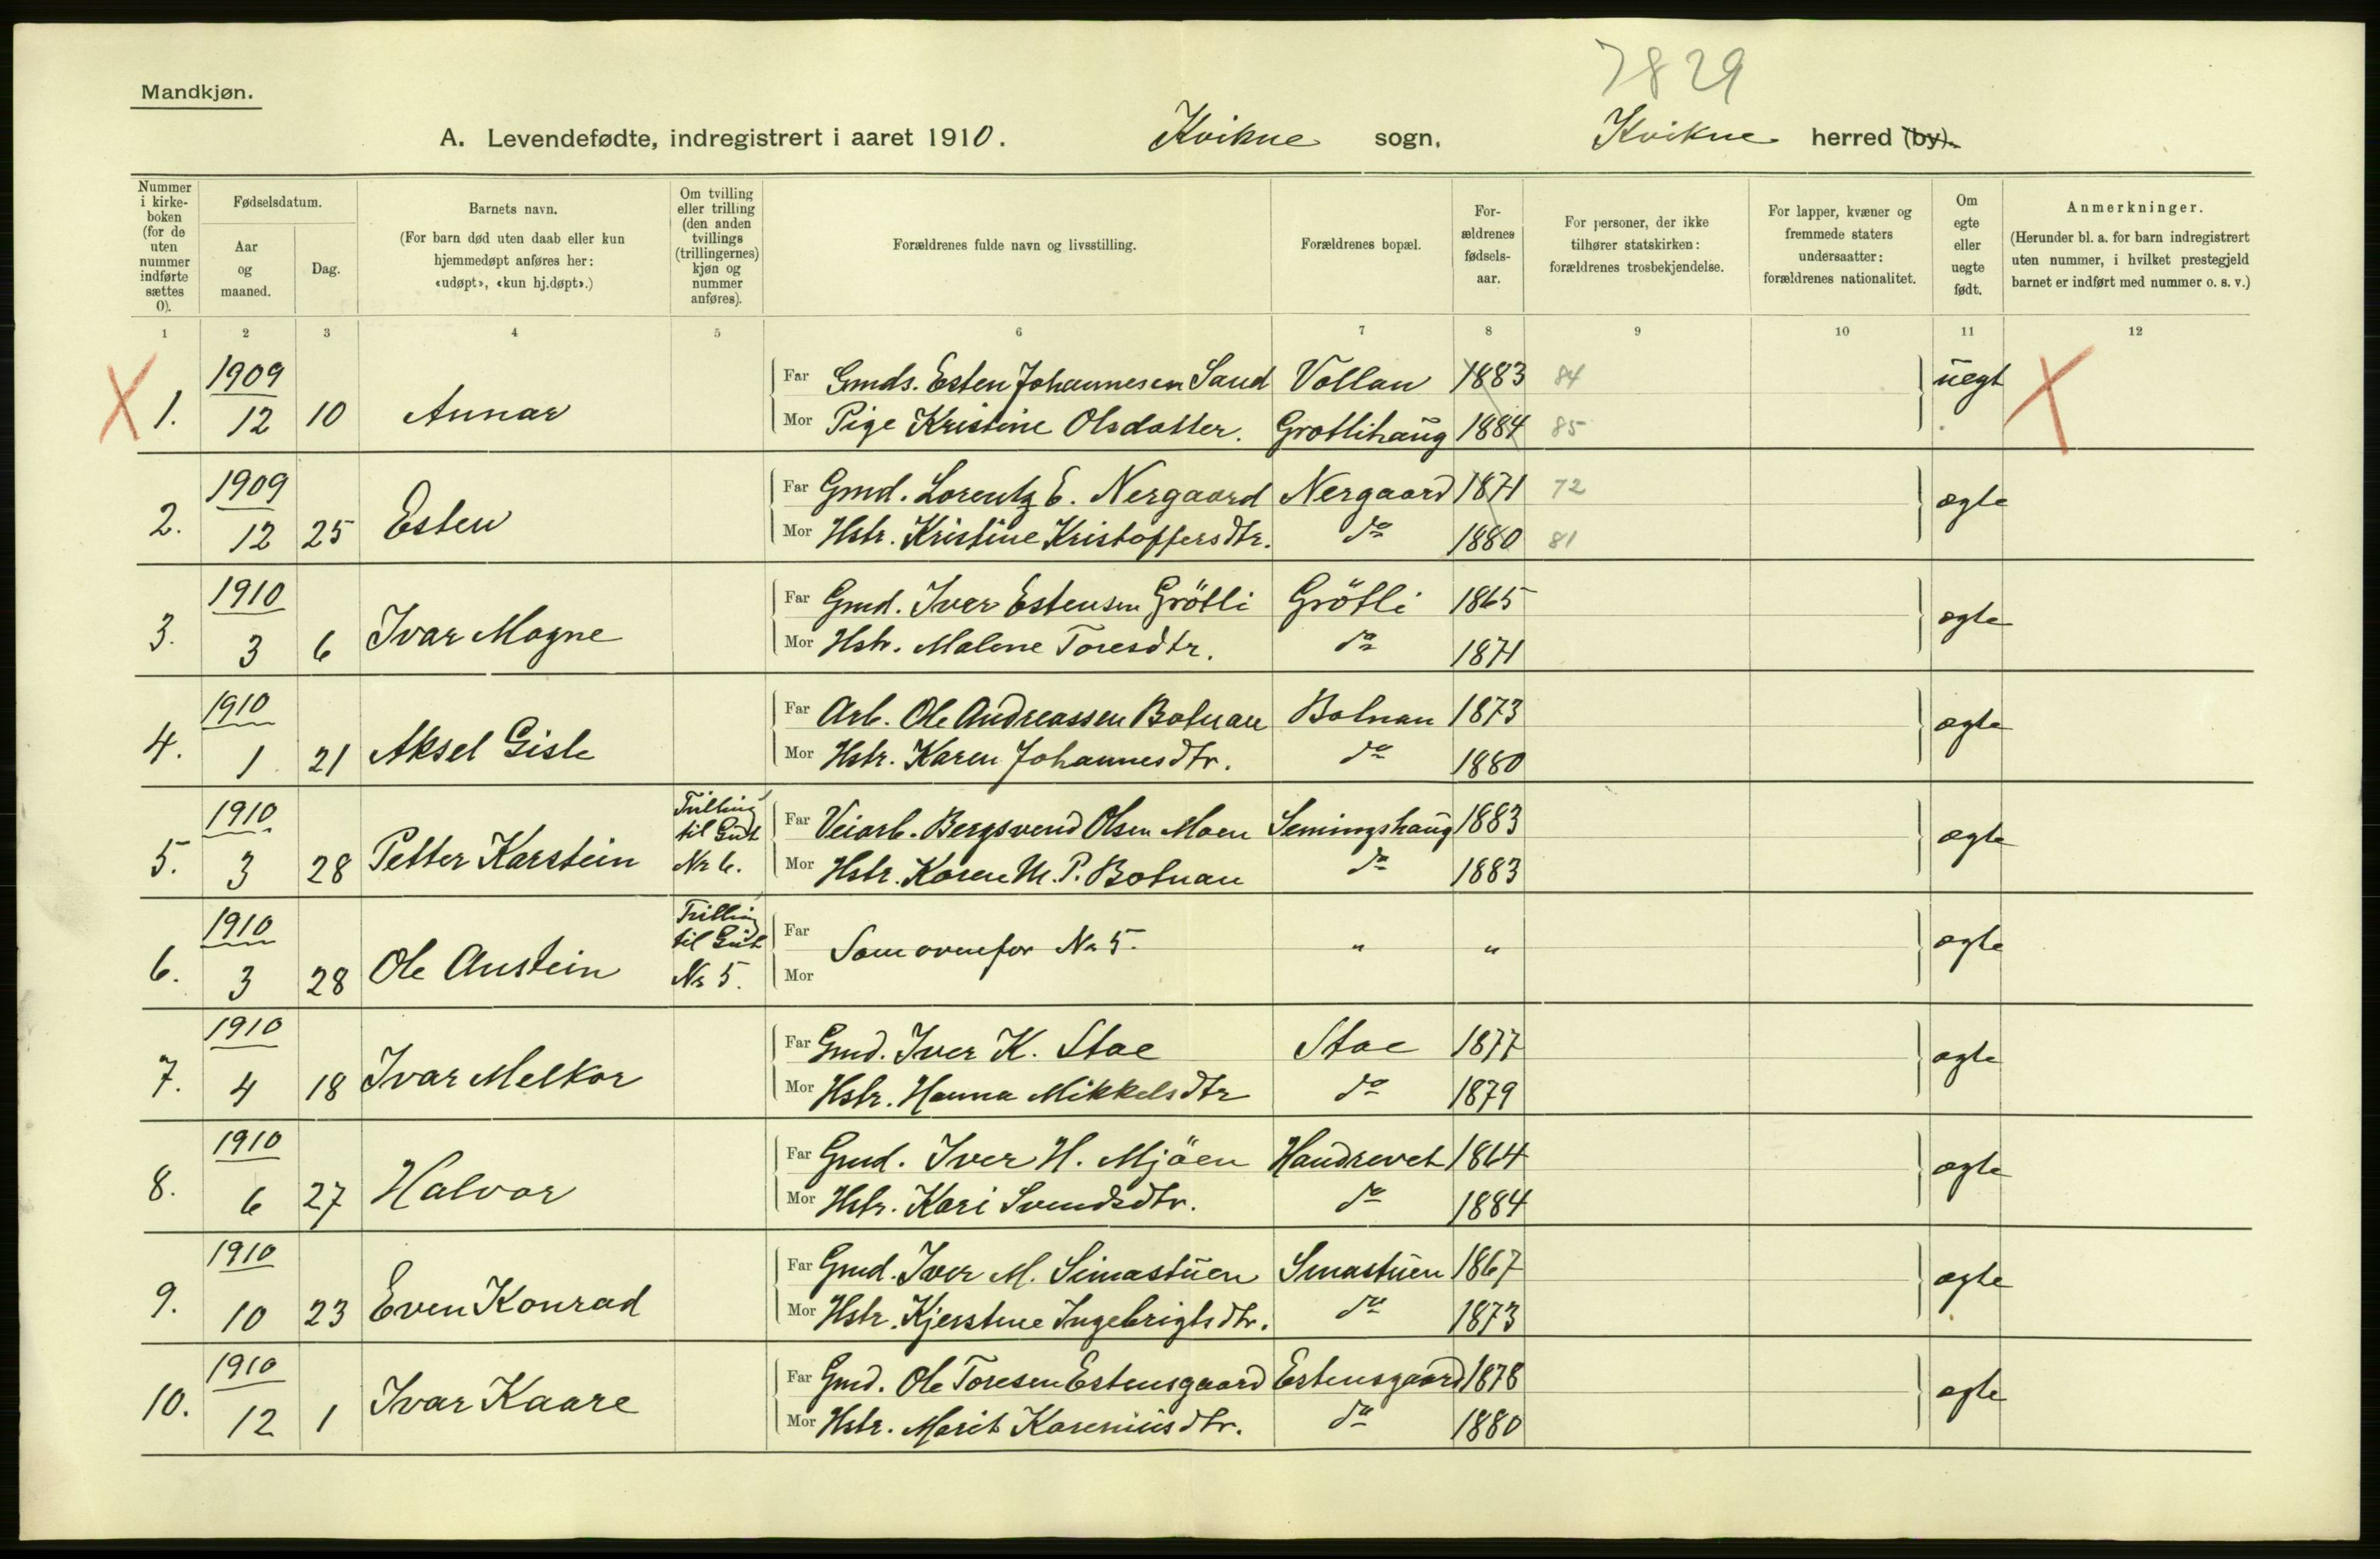 7829
Mandkjøn.
A. Levendefødte, indregistrert i aaret 1910. Kvikne sogn, Kvikne herred (by).
Nummer i kirke-boken (for de uten nummer indførte sættes 0).
Fødselsdatum.
Aar og maaned.
Dag.
Barnets navn.
(For barn død uten daab eller kun hjemmedøpt anføres her: «udøpt», «kun hj.døpt».)
Om tvilling eller trilling (den anden tvillings (trillingernes) kjøn og nummer anføres).
Forældrenes fulde navn og livsstilling.
Forældrenes bopæl.
For-ældrenes fødsels-aar.
For personer, der ikke tilhører statskirken: forældrenes trosbekjendelse.
For lapper, kvæner og fremmede staters undersaatter: forældrenes nationalitet.
Om egte eller uegte født.
Anmerkninger.
(Herunder bl. a. for barn indregistrert uten nummer, i hvilket prestegjeld barnet er indført med nummer o. s. v.)
1 2 3 4 5 6 7 8 9 10 11 12
X 1. 1909 12 10 Annar
Far Gmds. Esten Johannesen Sand Vollan 1883 84 uegt X
Mor Pige Kristine Olsdatter. Grøtlihaug 1884 85
2. 1909 12 25 Esten
Far Gmd. Lorentz E. Nergaard Nergaard 1871 72 ægte
Mor Hstr. Kristine Kristoffersdtr. do 1880 81
3. 1910 3 6 Ivar Magne
Far Gmd. Iver Estensen Grötli Grötli 1865 ægte
Mor Hstr. Malene Toresdtr. do 1871
4. 1910 1 21 Aksel Gisle
Far Arb. Ole Andreassen Botnan Botnan 1873 ægte
Mor Hstr. Karen Johannesdtr. do 1880
5. 1910 3 28 Petter Karstein Tvilling til Gut Nr 6.
Far Veiarb. Bergsvend Olsen Moen Semingshaug 1883 ægte
Mor Hstr. Karen M. P. Botnan do 1883
6. 1910 3 28 Ole Austein Tvilling til Gut Nr 5.
Far Mor Som ovenfor Nr 5. " " ægte
7. 1910 4 18 Ivar Melkor
Far Gmd. Iver K. Stae Stae 1877 ægte
Mor Hstr. Hanna Mikkelsdtr do 1879
8. 1910 6 27 Halvor
Far Gmd. Iver H. Mjöen Haudrevet 1864 ægte
Mor Hstr. Kari Svendsdtr. do 1884
9. 1910 10 23 Even Konrad
Far Gmd. Iver M. Simastuen Smastuen 1867 ægte
Mor Hstr. Kjerstine Ingebrigtsdtr. do 1873
10. 1910 12 1 Ivar Kaare
Far Gmd. Ole Toresen Estensgaard Estensgaard 1878 ægte
Mor Hstr. Marit Kareniusdtr. do 1880